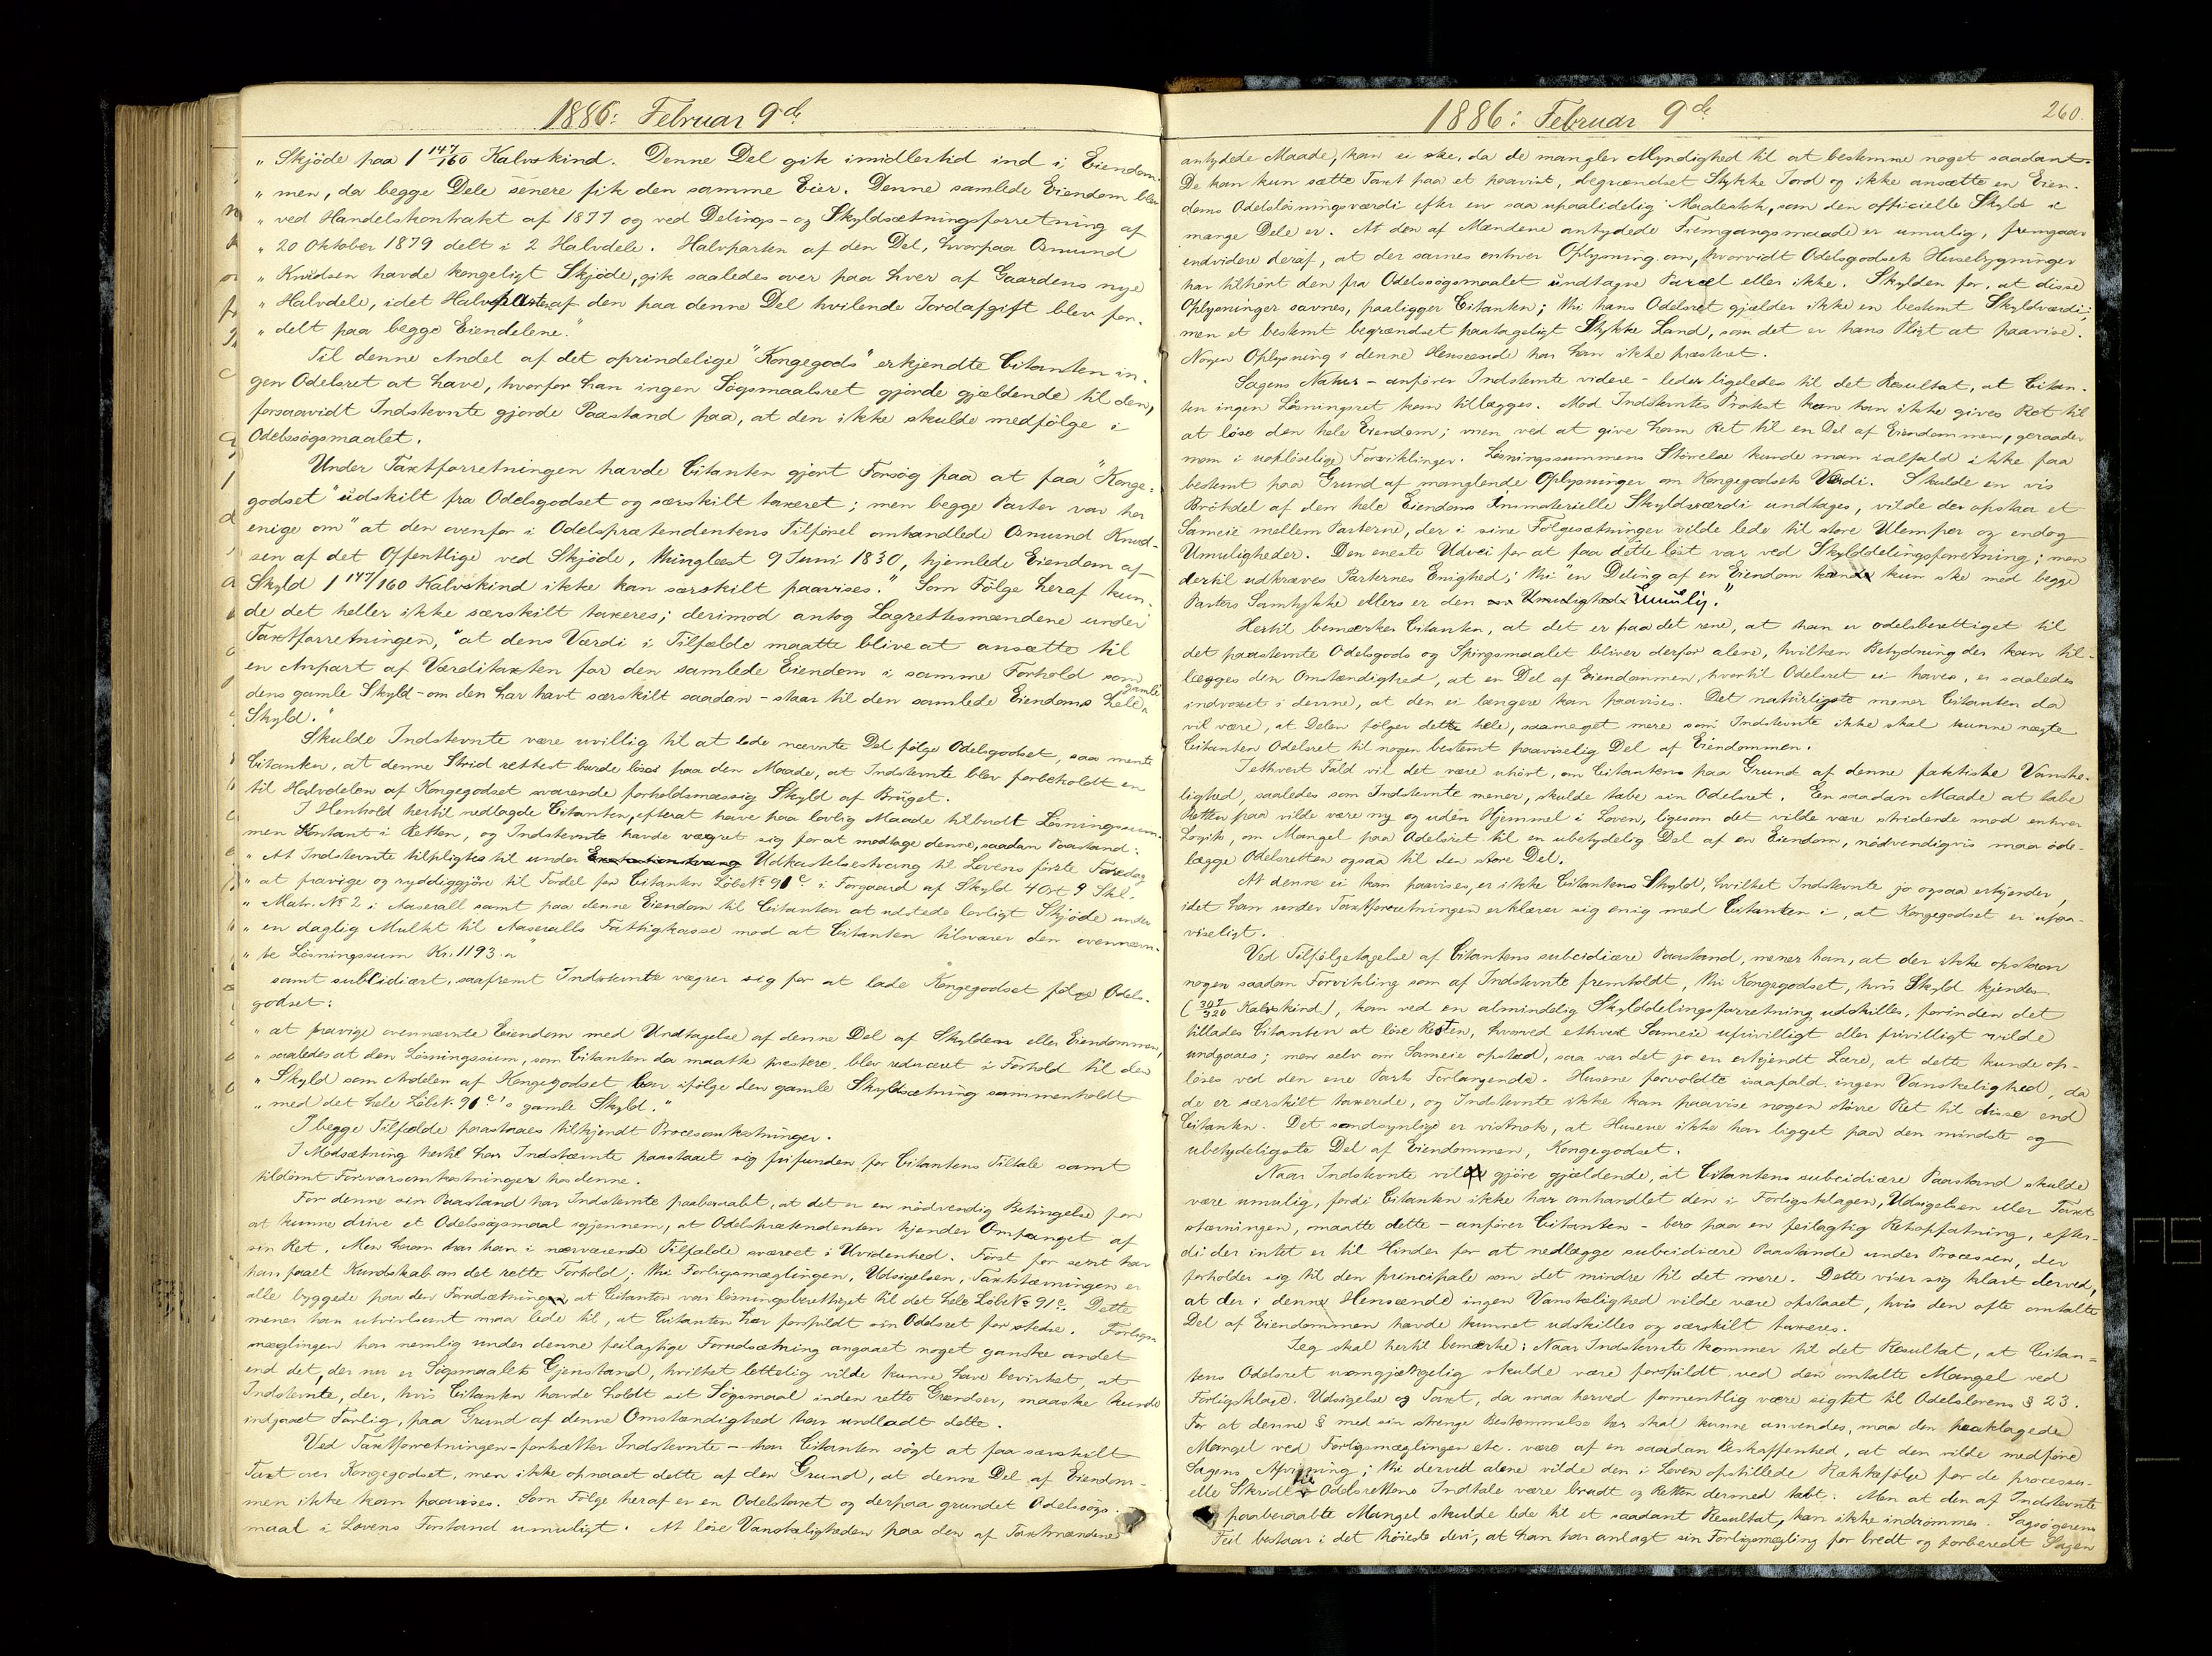 1886: Februar 9de
" Skjöde paa 1 147/160 Kalvskind. Denne Del gik imidlertid ind i Eiendom-
" men, da begge Dele senere fik den samme Eier. Denne samlede Eiendom blev
" ved Handelskontrakt af 1877 og ved Delings- og Skyldsætningsforretning af
" 20 Oktober 1879 delt i 2 Halvdele. Halvparten af den Del, hvorpaa Osmund
" Knudsen havde kongeligt Skjöde, gik saaledes over paa hver af Gaardens nye
" Halvdele, idet Halvparten af den paa denne Del hvilende Jordafgift blev for-
" delt paa begge Eiendelene."
Til denne Andel af det oprindelige "Kongegods" erkjendte Citanten in-
gen Odelsret at have, hvorfor han ingen Sögsmaalsret gjorde gjældende til den,
forsaavidt Indstevnte gjorde Paastand paa, at den ikke skulde medfölge i
Odelssögsmaalet.
Under Taxtforretningen havde Citanten gjort Forsög paa at faa "Konge-
godset" udskilt fra Odelsgodset og særskilt taxeret; men begge Parter var her
enige om "at den ovenfor i Odelsprætendentens Tilförsel omhandlede Osmund Knud-
sen af det Offentlige ved Skjöde, thinglæst 9 Juni 1830, hjemlede Eiendom af
Skyld 1 147/160 Kalvskind ikke kan særskilt paavises." Som Fölge heraf kun-
de det heller ikke særskilt taxeres; derimod antog Lagrettesmændene under
Taxtforretningen, "at dens Værdi i Tilfælde maatte blive at ansætte til
en Anpart af Værditaxten for den samlede Eiendom i samme Forhold som
dens gamle Skyld - om den har havt særskilt saadan - staar til den samlede Eiendoms hele gamle
Skyld."
Skulde Indstevnte være uvillig til at lade nævnte Del fölge Odelsgodset, saa mente
Citanten, at denne Strid rettest burde löses paa den Maade, at Indstevnte blev forbeholdt en
til Halvdelen af Kongegodset svarende forholdsmæssig Skyld af Bruget.
I Henhold hertil nedlagde Citanten, efterat have paa lovlig Maade tilbudt Lösningssum-
men kontant i Retten, og Indstevnte havde vægret sig for at modtage denne, saadan Paastand:
" At Indstevnte tilpligtes til under Udkastelsestvang til Lovens förste Faredag
" at fravige og ryddiggjöre til Fordel for Citanten Löbe No 91c i Forgaard af Skyld 4 Ort 9 Skl.
" Matr. No 2 i Aaserall samt paa denne Eiendom til Citanten at udstede lovligt Skjöde under
" en daglig Mulkt til Aaseralls Fattigkasse mod at Citanten tilsvarer den ovennævn-
" te Lösningssum Kr. 1193."
samt subsidiært, saafremt Indstevnte vægrer sig for at lade Kongegodset fölge Odels-
godset:
" at fravige ovennævnte Eiendom med Undtagelse af denne Del af Skylden eller Eiendommen,
" saaledes at den Lösningssum, som Citanten da maatte præstere, blev reduceret i Forhold til den
" Skyld som Andelen af Kongegodset bar ifölge den gamle Skyldsætning sammenholdt
" med det hele Löbe No 91c's gamle Skyld."
I begge Tilfælde paastaaes tilkjendt Procesomkostninger.
I Modsætning hertil har Indstævnte paastaaet sig frifunden for Citantens Tiltale samt
tildömt Forsvarsomkostninger hos denne.
For denne sin Paastand har Indstevnte paaberaabt, at det er en nödvendig Betingelse for
at kunne drive et Odelssögsmaal igjennem, at Odelsprætendenten kjender Omfanget af
sin Ret. Men herom har han i nærværende Tilfælde svævet i Uvidenhed. Först for sent har
han faaet Kundskab om det rette Forhold; thi Forligsmæglingen, Udsigelsen, Taxtstævningen er
alle byggede paa den Forudsætning at Citanten var lösningsberettiget til det hele Löbe No 91c. Dette
mener han utvivlsomt maa lede til, at Citanten har forspildt sin Odelsret for stedse. Forligs-
mæglingen har nemlig under denne feilagtige Forudsætning angaaet noget ganske andet
end det, der nu er Sögsmaalets Gjenstand, hvilket lettelig vilde kunne have bevirket, at
Indstevnte, der, hvis Citanten havde holdt sit Sögsmaal inden rette Grændser, maaske kunde
indgaaet Forlig, paa Grund af denne Omstændighed har undladt dette.
Ved Taxtforretningen - fortsætter Indstevnte - har Citanten sögt at faa særskilt
Taxt over Kongegodset, men ikke opnaaet dette af den Grund, at denne Del af Eiendom-
men ikke kan paavises. Som Fölge heraf er en Odelstaxt og derpaa grundet Odelssögs-
maal i Lovens Forstand umuligt. At löse Vanskeligheden paa den af Taxtmændene
1886: Februar 9de
260.
antydede Maade, kan ei ske, da de mangler Myndighed til at bestemme noget saadant.
De kan kun sætte Taxt paa et paavist, begrændset Stykke Jord og ikke ansætte en Eien-
doms Odelslösningsværdi efter en saa upaalidelig Maalestok, som den officielle Skyld i
mange Dele er. At den af Mændene antydede Fremgangsmaade er umulig, fremgaar
endvidere deraf, at der savnes enhver Oplysning om, hvorvidt Odelsgodsets Husebygninger
har tilhört den fra Odelssögsmaalet undtagne Parcel eller ikke. Skylden for, at disse
Oplysninger savnes, paaligger Citanten; thi hans Odelsret gjælder ikke en bestemt Skyldværdi;
men et bestemt begrændset paatageligt Stykke Land, som det er hans Pligt at paavise.
Nogen Oplysning i denne Henseende har han ikke præsteret.
Sagens Natur - anförer Indstevnte videre - leder ligeledes til det Resultat, at Citan-
ten ingen Lösningsret kan tillægges. Mod Indstevntes Protest kan han ikke gives Ret til
at löse den hele Eiendom; men ved at give ham Ret til en Del af Eiendommen, geraader
man i uoplöselige Forviklinger. Lösningssummens Störrelse kunde man ialfald ikke faa
bestemt paa Grund af manglende Oplysninger om Kongegodsets Værdi. Skulde en vis
Brökdel af den hele Eiendoms immaterielle Skyldværdi undtages, vilde der opstaa et
Sameie mellem Parterne, der i sine Fölgesætninger vilde lede til store Ulemper og endog
Umuligheder. Den eneste Udvei for at faa dette löst var ved Skylddelingsforretning; men
dertil udkræves Parternes Enighed; thi "en Deling af en Eiendom kan kun ske med begge
Parters Samtykke ellers er den umulig."
Hertil bemærker Citanten, at det er paa det rene, at han er odelsberettiget til
det paastevnte Odelsgods og Spörgsmaalet bliver derfor alene, hvilken Betydning der kan til-
lægges den Omstændighed, at en Del af Eiendommen, hvortil Odelsret ei haves, er saaledes
indvoxet i denne, at den ei længere kan paavises. Det naturligste mener Citanten da
vil være, at Delen fölger dette hele, saameget mere som Indstevnte ikke skal kunne nægte
Citanten Odelsret til nogen bestemt paaviselig Del af Eiendommen.
I ethvert Fald vil det være uhört, om Citantens paa Grund af denne faktiske Vanske-
lighed, saaledes som Indstevnte mener, skulde tabe sin Odelsret. En saadan Maade at tabe
Retten paa vilde være ny og uden Hjemmel i Loven, ligesom det vilde være stridende mod enhver
Logik, om Mangel paa Odelsret til en ubetydelig Del af en Eiendom, nödvendigvis maa öde-
lægge Odelsretten ogsaa til den store Del.
At denne ei kan paavises, er ikke Citantens Skyld, hvilket Indstevnte jo ogsaa erkjender,
idet han under Taxtforretningen erklærer sig enig med Citanten i, at Kongegodset er upaa-
viseligt.
Ved Tilfölgetagelse af Citantens subcidiære Paastand, mener han, at der ikke opstaar
nogen saadan Forvikling som af Indstevnte fremholdt, thi Kongegodset, hvis Skyld kjendes
(307/320 Kalvskind), kan ved en almindelig Skylddelingsforretning udskilles, forinden det
tillades Citanten at löse Resten, hvorved ethvert Sameie ufrivilligt eller frivilligt vilde
undgaaes; men selv om Sameie opstod, saa var det jo en erkjendt Lære, at dette kunde op-
löses ved den ene Parts Forlangende. Husene forvoldte isaafald ingen Vanskelighed, da
de er særskilt taxerede, og Indstevnte ikke kan paavise nogen större Ret til disse end
Citanten. Det sandsynlige er vistnok, at Husene ikke har ligget paa den mindste og
ubetydeligste Del af Eiendommen, Kongegodset.
Naar Indstevnte vil gjöre gjældende, at Citantens subcidiære Paastand skulde
være umulig, fordi Citanten ikke har omhandlet den i Forligsklagen, Udsigelsen eller Taxt
stævningen, maatte dette - anförer Citanten - bero paa en feilagtig Retsopfatning, efter-
di der intet er til Hinder for at nedlægge subcidiære Paastande under Processen, der
forholder sig til den principale som det mindre til det mere. Dette viser sig klart derved,
at der i denne Henseende ingen Vanskelighed vilde være opstaaet, hvis den ofte omtalte
Del af Eiendommen havde kunnet udskilles og særskilt taxeres.
Jeg skal hertil bemærke: Naar Indstevnte kommer til det Resultat, at Citan-
tens Odelsret uomgjængelig skulde være forspildt ved den omtalte Mangel ved
Forligsklage, Udsigelse og Taxt, da maa herved formentlig være sigtet til Odelslovens § 23.
For at denne § med sin strenge Bestemmelse her skal kunne anvendes, maa den paaklagede
Mangel ved Forligsmæglingen etc. være af en saadan Beskaffenhed, at den vilde medföre
Sagens Afvisning; thi derved alene vilde den i Loven opstillede Rækkefölge for de processu-
elle Skridt til Odelsrettens Indtale være brudt og Retten dermed tabt. Men at den af Indstevnte
paaberaabte Mangel skulde lede til et saadant Resultat, kan ikke indrömmes. Sagsögerens
Feil bestaar i det höieste deri, at han har anlagt sin Forligsmægling for bredt og forberedt Sagen